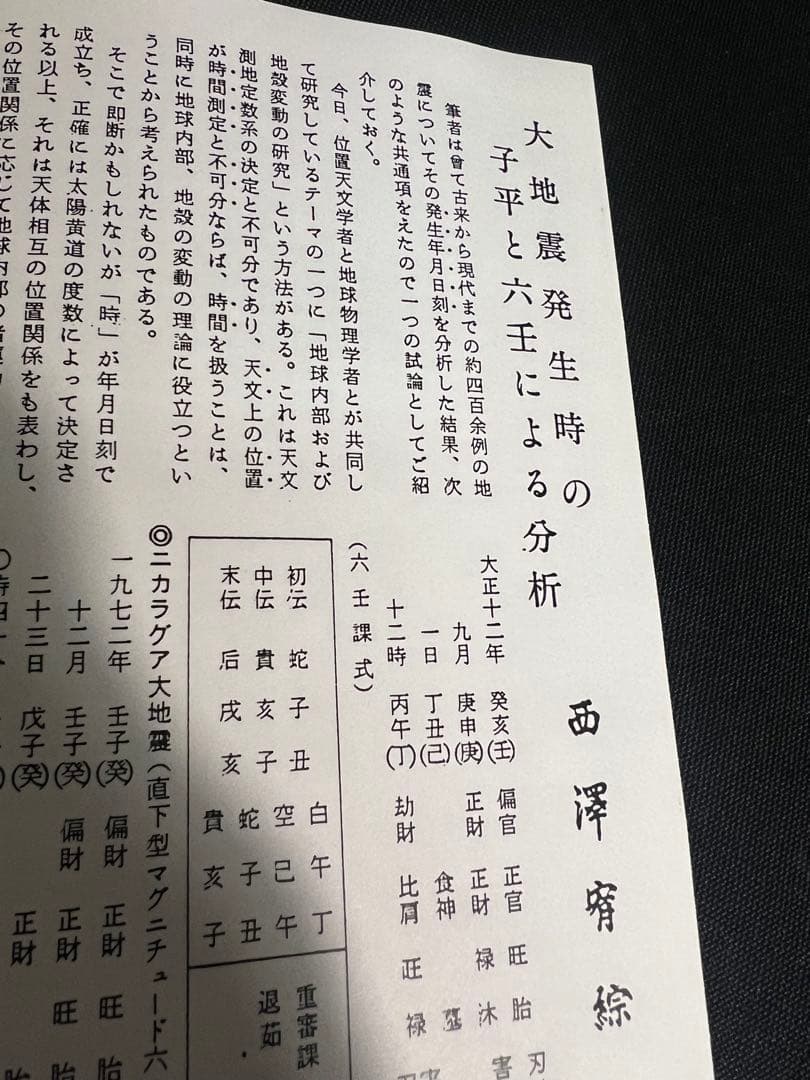 大地震発生時の
子平と六壬による分析
西澤宥綜
筆者は曾て古来から現代までの約四百余例の地
震についてその発生年月日刻を分析した結果、次
のような共通項をえたので一つの試論としてご紹
介しておく。
今日、位置天文学者と地球物理学者とが共同し
て研究しているテーマの一つに「地球内部および
地殻変動の研究」という方法がある。これは天文
測地定数系の決定と不可分であり、天文上の位置
が時間測定と不可分ならば、時間を扱うことは、
同時に地球内部、地殻の変動の理論に役立つとい
うことから考えられたものである。
そこで即断かもしれないが「時」が年月日刻で
成立ち、正確には太陽黄道の度数によって決定さ
れる以上、それは天体相互の位置関係をも表わし、
その位置関係に応じて地球内部の
大正十二年 癸亥(壬) 偏官 正官 旺 胎 刃
九月 庚申(庚) 正財 正財 禄 沐 害
一日 丁丑(己) 食神 墓
十二時 丙午(丁) 劫財 比肩 旺 禄
(六壬課式)
初伝 蛇 子 丑
中伝 貴 亥 子
末伝 后 戌 亥
白 午 丁
空 巳 午
蛇 子 丑
貴 亥 子
重審課
退茹
◎ニカラグア大地震(直下型マグニチュード六
一九七二年 壬子(癸) 偏財 正財 旺 胎
十二月 壬子(癸) 偏財 正財 旺 胎
二十三日 戊子(癸) 正財 胎